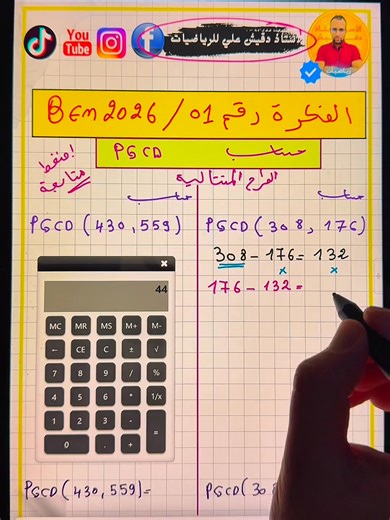 You Tube
أستاذ دقيش علي للرياضيات
الفكرة رقم 01 / BEM 2026
حساب PGCD
اضغط متابعة
الفرق المتتالية
حساب
PGCD(308, 176)
308 - 176 = 132
176 - 132 =
حساب
PGCD(430, 559)
44
MC MR MS M+ M-
← CE C ± √
7 8 9 / %
4 5 6 * 1/x
1 2 3 - =
0 . +
PGCD(430, 559)=
PGCD(30